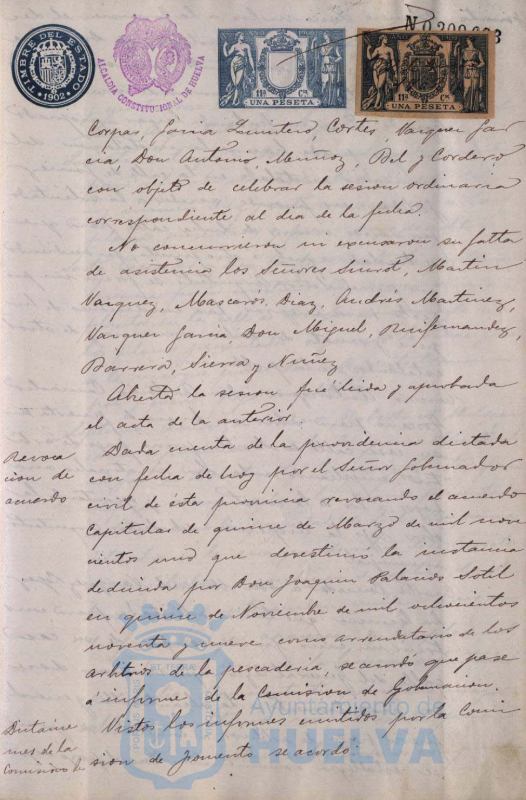 TIMBRE DEL ESTADO
1902
ALCALDIA CONSTITUCIONAL DE HUELVA
11ª Cª
UNA PESETA
11ª Cª
UNA PESETA
Corpas, Garcia Quintero, Cortes Vazquez Gar
cia, Don Antonio, Muñoz, Bel y Cordero,
con objeto de celebrar la sesion ordinaria
correspondiente al dia de la fecha.
No concurrieron ni excusaron su falta
de asistencia los Señores Martin
Vazquez, Mascarós, Diaz, Andrés Martinez,
Vazquez Garcia, Don Miguel, Ruifernandez,
Barrera, Sierra y Nuñez
Abierta la sesion, fué leida y aprobada
el acta de la anterior.
Revoca
cion de
acuerdo
Dada cuenta de la providencia dictada
con fecha de hoy por el Señor Gobernador
civil de ésta provincia revocando el acuerdo
Capitular de quince de Marzo de mil nove
cientos uno que desestimó la instancia
deducida por Don Joaquin Palacios Sotil
en quince de Noviembre de mil ochocientos
noventa y nueve como arrendatario de los
arbitrios de la pescaderia, se acordó que pase
á informe de la Comision de Gobernacion.
Dictáme
nes de la
Comision
Vistos los informes emitidos por la Comi
sion de fomento se acordó:
Ayuntamiento de
HUELVA